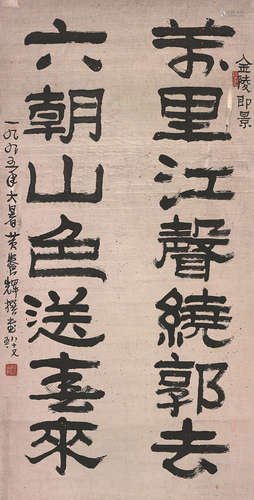 金陵即景
万里江聲繞郭去
六朝山色送喜來
一九九五年大暑黄養輝撰書